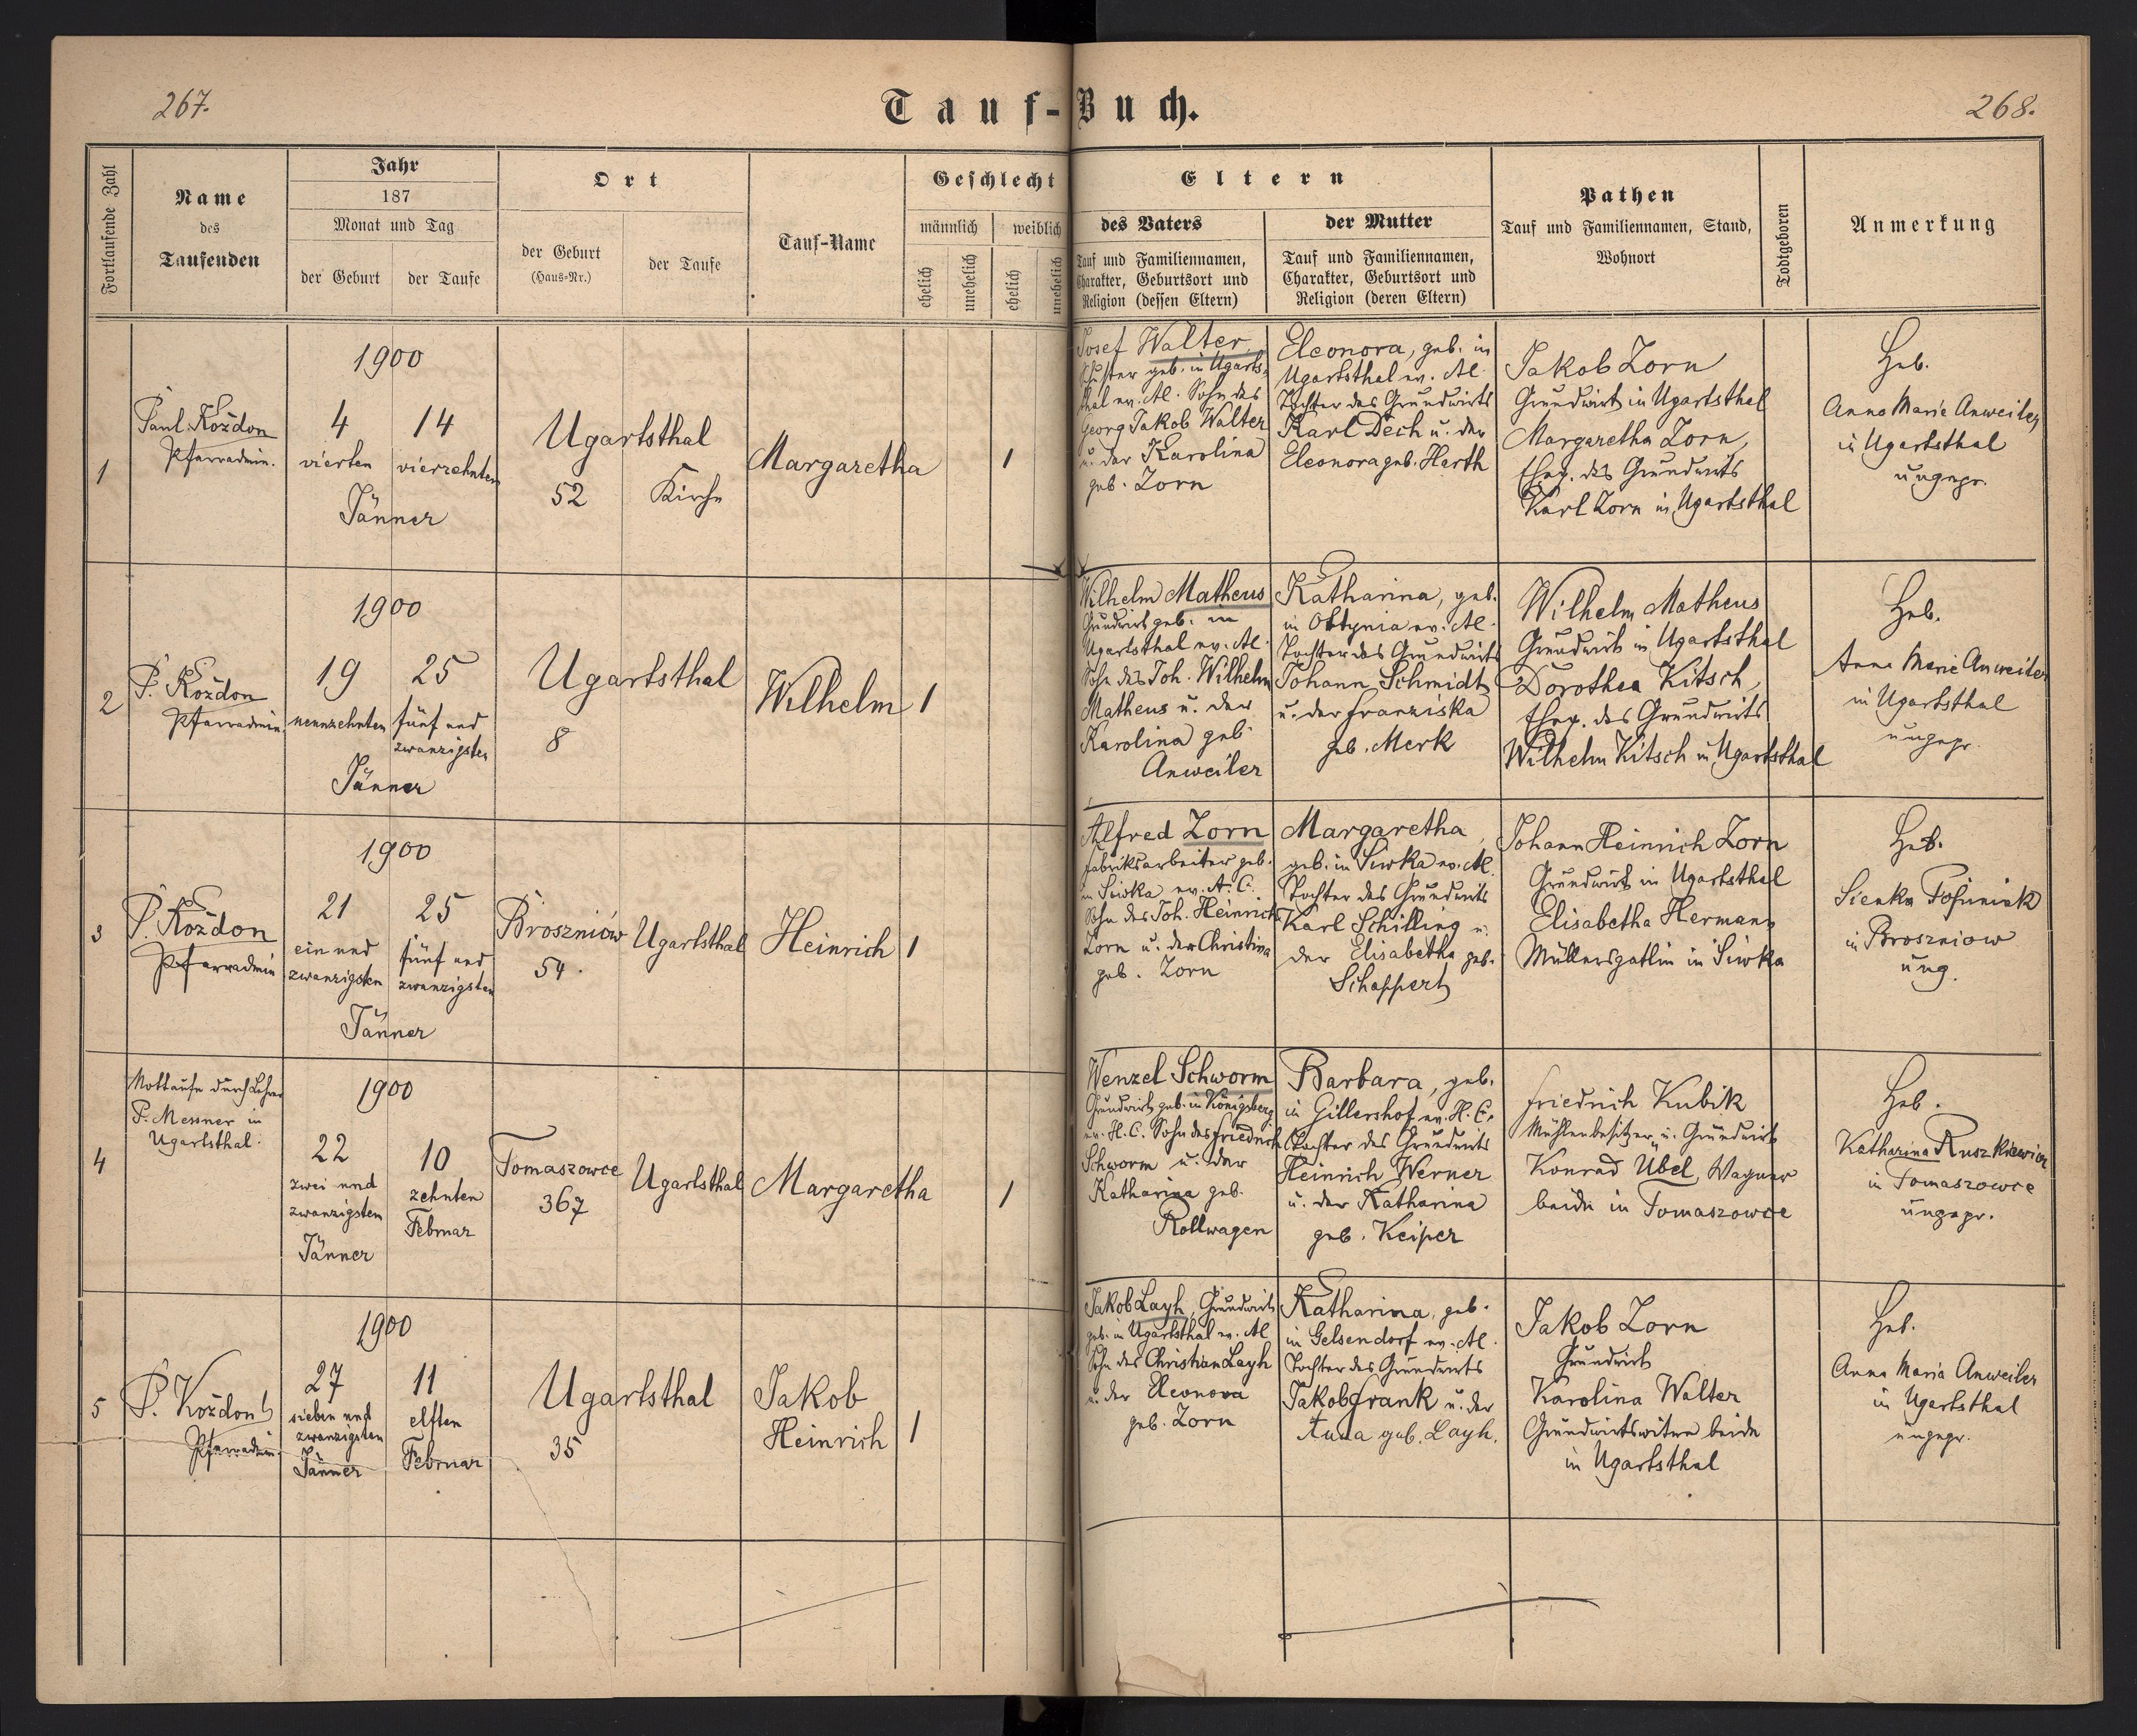 267.
Tauf-Buch.
268.
Fortlaufende Zahl
Name
des
Taufenden
Jahr
187
Monat und Tag
der Geburt
der Taufe
Ort
der Geburt
(Haus-Nr.)
der Taufe
Tauf-Name
Geschlecht
männlich
weiblich
ehelich
unehelich
ehelich
unehelich
Eltern
des Vaters
Tauf und Familiennamen,
Charakter, Geburtsort und
Religion (dessen Eltern)
der Mutter
Tauf und Familiennamen,
Charakter, Geburtsort und
Religion (deren Eltern)
Pathen
Tauf und Familiennamen, Stand,
Wohnort
Todtgeboren
Anmerkung
1
Paul Kożdon
Pfarradmin.
1900
4
vierten
14
vierzehnten
Jänner
Ugartsthal
52
Kirche
Margaretha
1
Josef Walter,
Schuster geb. in Ugarts-
thal ev. AC. Sohn des
Georg Jakob Walter
u. der Karolina
geb. Zorn
Eleonora, geb. in
Ugartsthal ev. AC.
Tochter des Grundwirts
Karl Dech u. der
Eleonora geb. Harth
Jakob Zorn
Grundwirt in Ugartsthal
Margaretha Zorn,
Eheg. des Grundwirts
Karl Zorn in Ugartsthal
Heb.
Anna Marie Anweiler
in Ugartsthal
ungepr.
2
P. Kożdon
Pfarradmin.
1900
19
neunzehnten
25
fünf und
zwanzigsten
Jänner
Ugartsthal
8
Wilhelm
1
Wilhelm Matheus
Grundwirt geb. in
Ugartsthal ev. AC.
Sohn des Joh. Wilhelm
Matheus u. der
Karolina geb.
Anweiler
Katharina, geb.
in Ottynia ev. AC.
Tochter des Grundwirts
Johann Schmidt
u. der Franziska
geb. Merk
Wilhelm Matheus
Grundwirt in Ugartsthal
Dorothea Kitsch,
Eheg. des Grundwirts
Wilhelm Kitsch in Ugartsthal
Heb.
Anna Marie Anweiler
in Ugartsthal
ungepr.
3
P. Kożdon
Pfarradmin
1900
21
ein und
zwanzigsten
25
fünf und
zwanzigsten
Jänner
Broszniów
54.
Ugartsthal
Heinrich
1
Alfred Zorn
Fabriksarbeiter geb.
in Siwka ev. A. C.
Sohn des Joh. Heinrich
Zorn u. der Christina
geb. Zorn
Margaretha,
geb. in Siwka ev. AC.
Tochter des Grundwirts
Karl Schilling u.
der Elisabetha geb.
Schappert
Johann Heinrich Zorn
Grundwirt in Ugartsthal
Elisabetha Hermann
Müllersgattin in Siwka
Heb.
Sienka
in Broszniow
ung.
4
Nottaufe durch Lehrer
P. Messner in
Ugartsthal.
1900
22
zwei und
zwanzigsten
Jänner
10
zehnten
Februar
Tomaszowce
367
Ugartsthal
Margaretha
1
Wenzel Schworm
Grundwirt geb. in Königsberg
ev. H. C. Sohn des Friedrich
Schworm u. der
Katharina geb.
Rollwagen
Barbara, geb.
in Gillershof ev. H. C.
Tochter des Grundwirts
Heinrich Werner
u. der Katharina
geb. Keiper
Friedrich Kubik
Mühlenbesitzer u. Grundwirt
Konrad Übel, Wagner
beide in Tomaszowce
Heb.
Katharina Ruszkiewicz
in Tomaszowce
ungepr.
5
P. Kożdon
Pfarradmin.
1900
27
sieben und
zwanzigsten
Jänner
11
elften
Februar
Ugartsthal
35
Jakob
Heinrich
1
Jakob Layh, Grundwirt
geb. in Ugartsthal ev. AC
Sohn des Christian Layh
u. der Eleonora
geb. Zorn
Katharina, geb.
in Gelsendorf ev. AC.
Tochter des Grundwirts
Jakob Frank u. der
Anna geb. Layh.
Jakob Zorn
Grundwirt
Karolina Walter
Grundwirtswitwe beide
in Ugartsthal
Heb.
Anna Maria Anweiler
in Ugartsthal
ungepr.